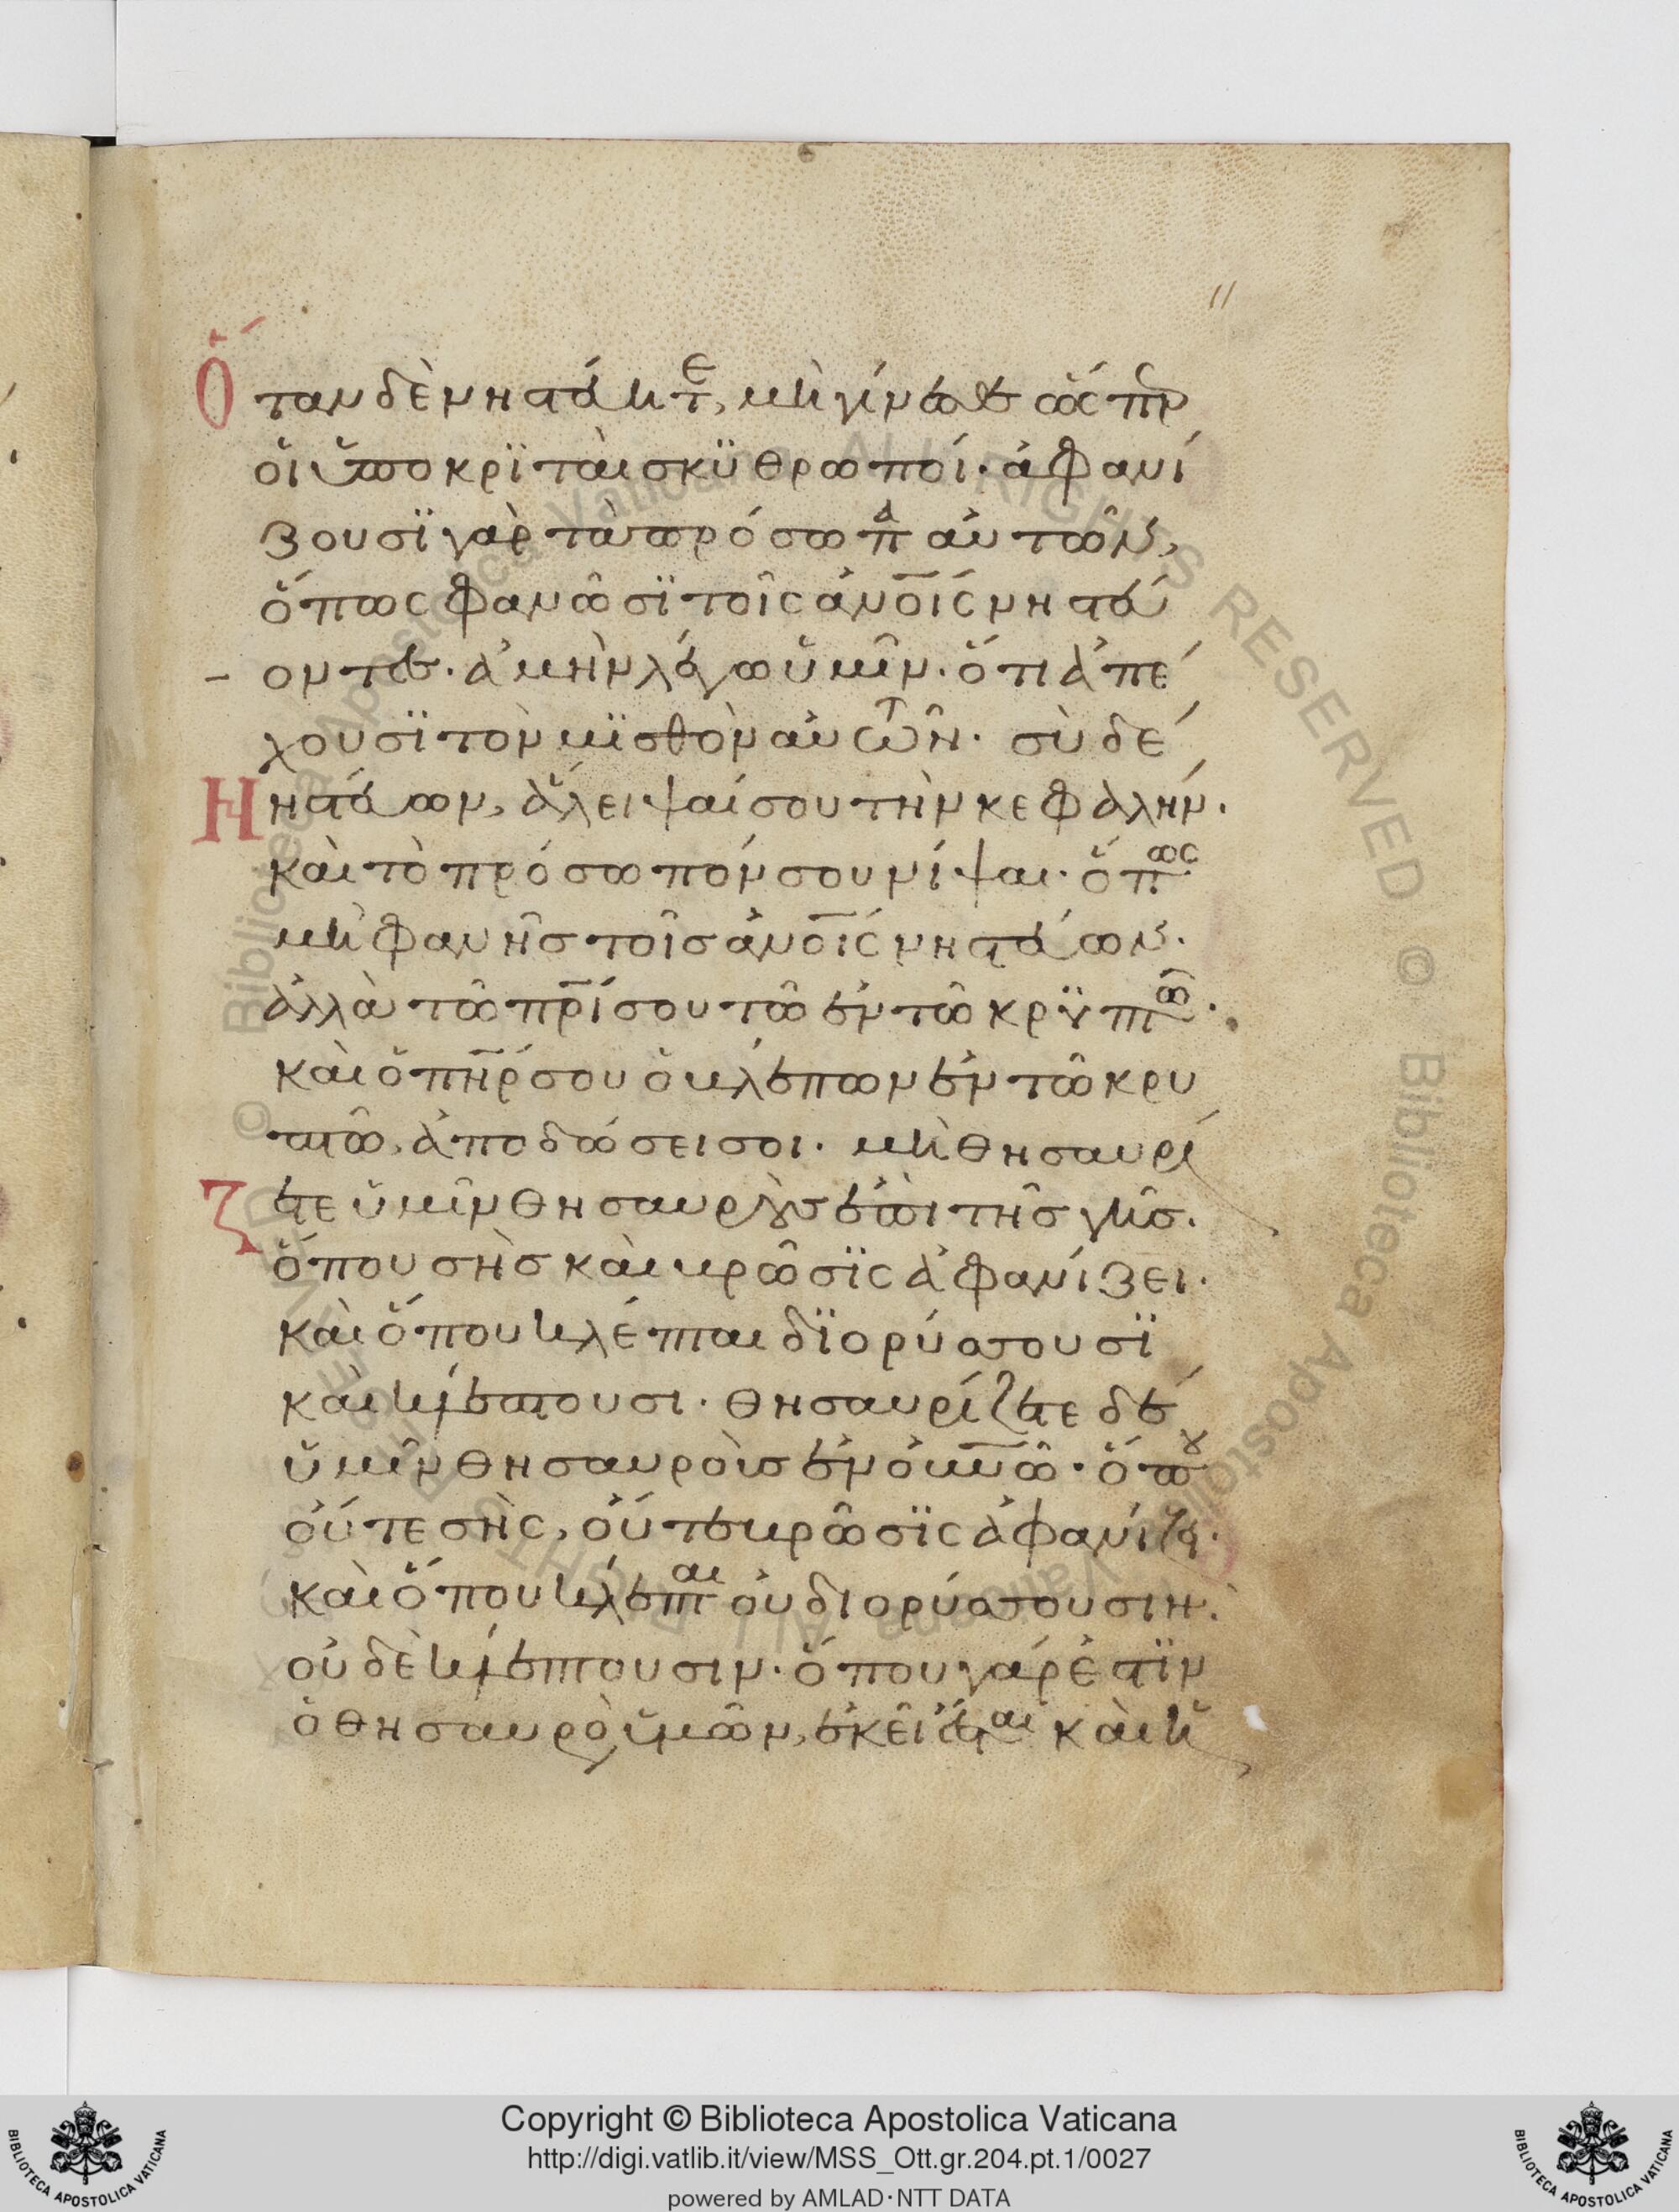 11
Ὅταν δὲ νηστεύητε, μὴ γίνεσθε ὥσπερ
οἱ ὑποκρϊταὶ σκϋθρωποί· ἀφανί
ζουσϊ γὰρ τὰ πρόσωπα αὐτῶν,
ὅπως φανῶσϊ τοῖς ἀνοῖς νηστεύ
οντες· ἀμὴν λέγω ὑμῖν· ὅτι ἀπέ
χουσϊ τὸν μϊσθὸν αὐτῶν· σὺ δέ
νηστεύων, ἄλειψαί σου τὴν κεφαλήν·
καὶ τὸ πρόσωπόν σου νίψαι· ὅπως
μὴ φανῆς τοῖς ἀνοῖς νηστεύων·
ἀλλὰ τῶ πρί σου τῶ ἐν τῶ κρϋπτῶ·
καὶ ὁ πήρ σου ὁ βλέπων ἐν τῶ κρυ
πτῶ, ἀποδώσει σοι· μὴ θησαυρί
ζετε ὑμῖν θησαυροὺς ἐπὶ τῆς γῆς·
ὅπου σὴς καὶ βρῶσϊς ἀφανίζει·
καὶ ὅπου κλέπται δϊορύσσουσϊ
καὶ κλέπτουσι· θησαυρίζετε δέ
ὑμῖν θησαυροὺς ἐν οὐνῶ· ὅπου
οὔτε σὴς, οὔτε βρῶσϊς ἀφανίζει·
καὶ ὅπου κλέπται οὐ διορύσσουσιν·
οὐδὲ κλέπτουσιν· ὅπου γάρ ἐστϊν
ὁ θησαυρὸς ὑμῶν, ἐκεῖ ἔσται καὶ ἡ
© Biblioteca Apostolica Vaticana ALL RIGHTS RESERVED © Biblioteca Apostolica Vaticana ALL RIGHTS RESERVED
Copyright © Biblioteca Apostolica Vaticana
http://digi.vatlib.it/view/MSS_Ott.gr.204.pt.1/0027
powered by AMLAD·NTT DATA
BIBLIOTECA APOSTOLICA VATICANA
BIBLIOTECA APOSTOLICA VATICANA